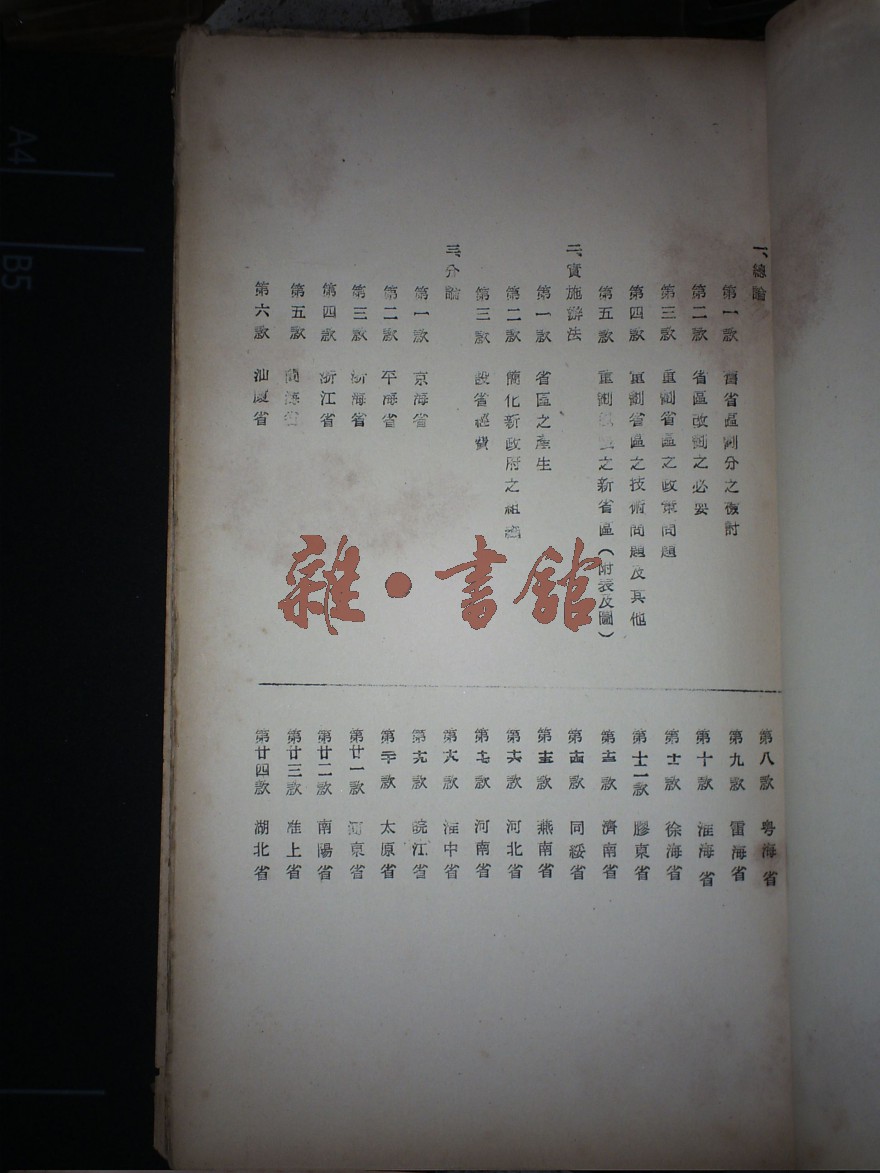 一、總論
第一款 舊省區劃分之檢討
第二款 省區改劃之必要
第三款 重劃省區之政策問題
第四款 重劃省區之技術問題及其他
第五款 重劃 之新省區(附表及圖)
二、實施辦法
第一款 省區之產生
第二款 簡化新政府之組織
第三款 設省經費
三、分論
第一款 京海省
第二款 平海省
第三款 浙海省
第四款 浙江省
第五款 閩海省
第六款 汕廈省
第八款 粵海省
第九款 雷海省
第十款 淮海省
第十一款 徐海省
第十二款 膠東省
第十三款 濟南省
第十四款 同綏省
第十五款 燕南省
第十六款 河北省
第十七款 河南省
第十八款 淮中省
第十九款 皖江省
第二十款 太原省
第廿一款 京省
第廿二款 南陽省
第廿三款 淮上省
第廿四款 湖北省
雜·書館
A4
B5